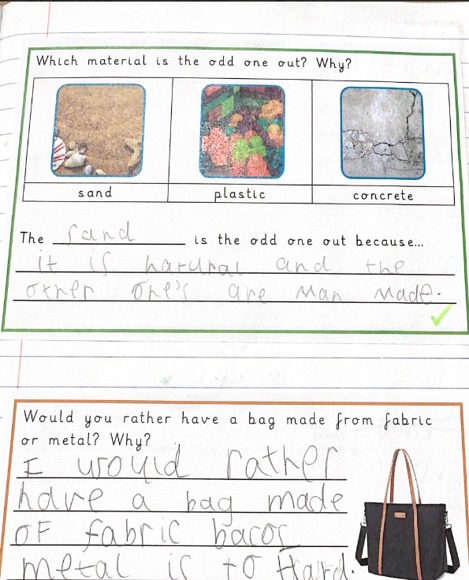 Which material is the odd one out? Why?
sand plastic concrete
The sand is the odd one out because...
it is natural and the
other one's are man made.
Would you rather have a bag made from fabric
or metal? Why?
I would rather
have a bag made
OF fabric bacos
metal is to Hard.